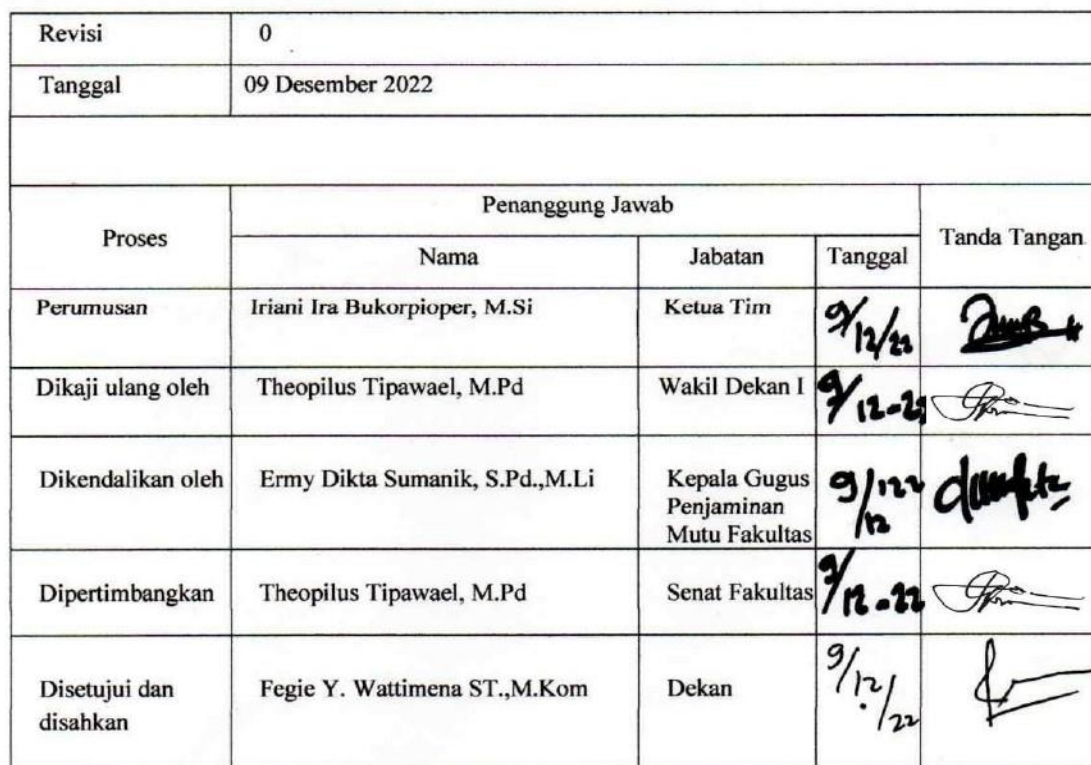 Revisi 0
Tanggal 09 Desember 2022
Proses Penanggung Jawab Tanda Tangan
Nama Jabatan Tanggal
Perumusan Iriani Ira Bukorpioper, M.Si Ketua Tim 9/12/22
Dikaji ulang oleh Theopilus Tipawael, M.Pd Wakil Dekan I 9/12-22
Dikendalikan oleh Ermy Dikta Sumanik, S.Pd.,M.Li Kepala Gugus
Penjaminan
Mutu Fakultas
Dipertimbangkan Theopilus Tipawael, M.Pd Senat Fakultas 9/12-22
Disetujui dan
disahkan
Fegie Y. Wattimena ST.,M.Kom Dekan 9/12/22